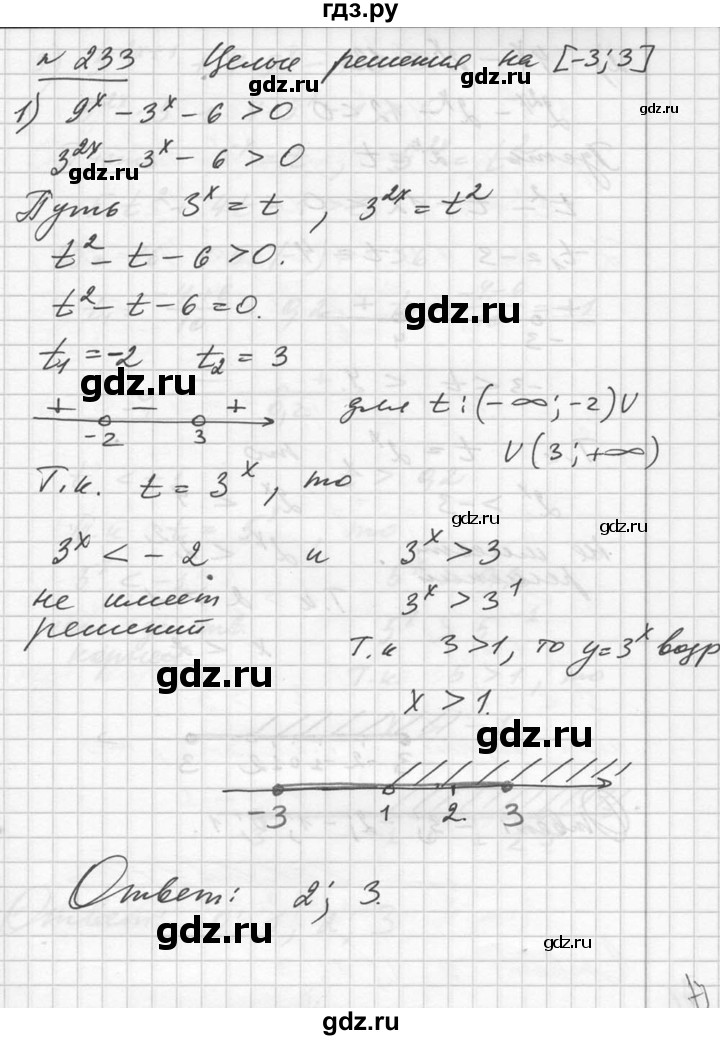 гдз.ру
№ 233 Целые решения на [-3; 3]
1) 9^x - 3^x - 6 > 0
3^2x - 3^x - 6 > 0
Путь 3^x = t, 3^2x = t^2
t^2 - t - 6 > 0.
t^2 - t - 6 = 0.
t1 = -2 t2 = 3
+ - +
-2 3
для t: (-∞; -2) U
U (3; +∞)
Т.к. t = 3^x, то
3^x < -2 и 3^x > 3
не имеет 3^x > 3^1
решений
Т.к 3 > 1, то y = 3^x возр
x > 1.
-3 1 2 3
Ответ: 2; 3.
gdz.ru
gdz.ru
gdz.ru
gdz.ru
gdz.ru
gdz.ru
gdz.ru
gdz.ru
gdz.ru
gdz.ru
gdz.ru
gdz.ru
gdz.ru
gdz.ru